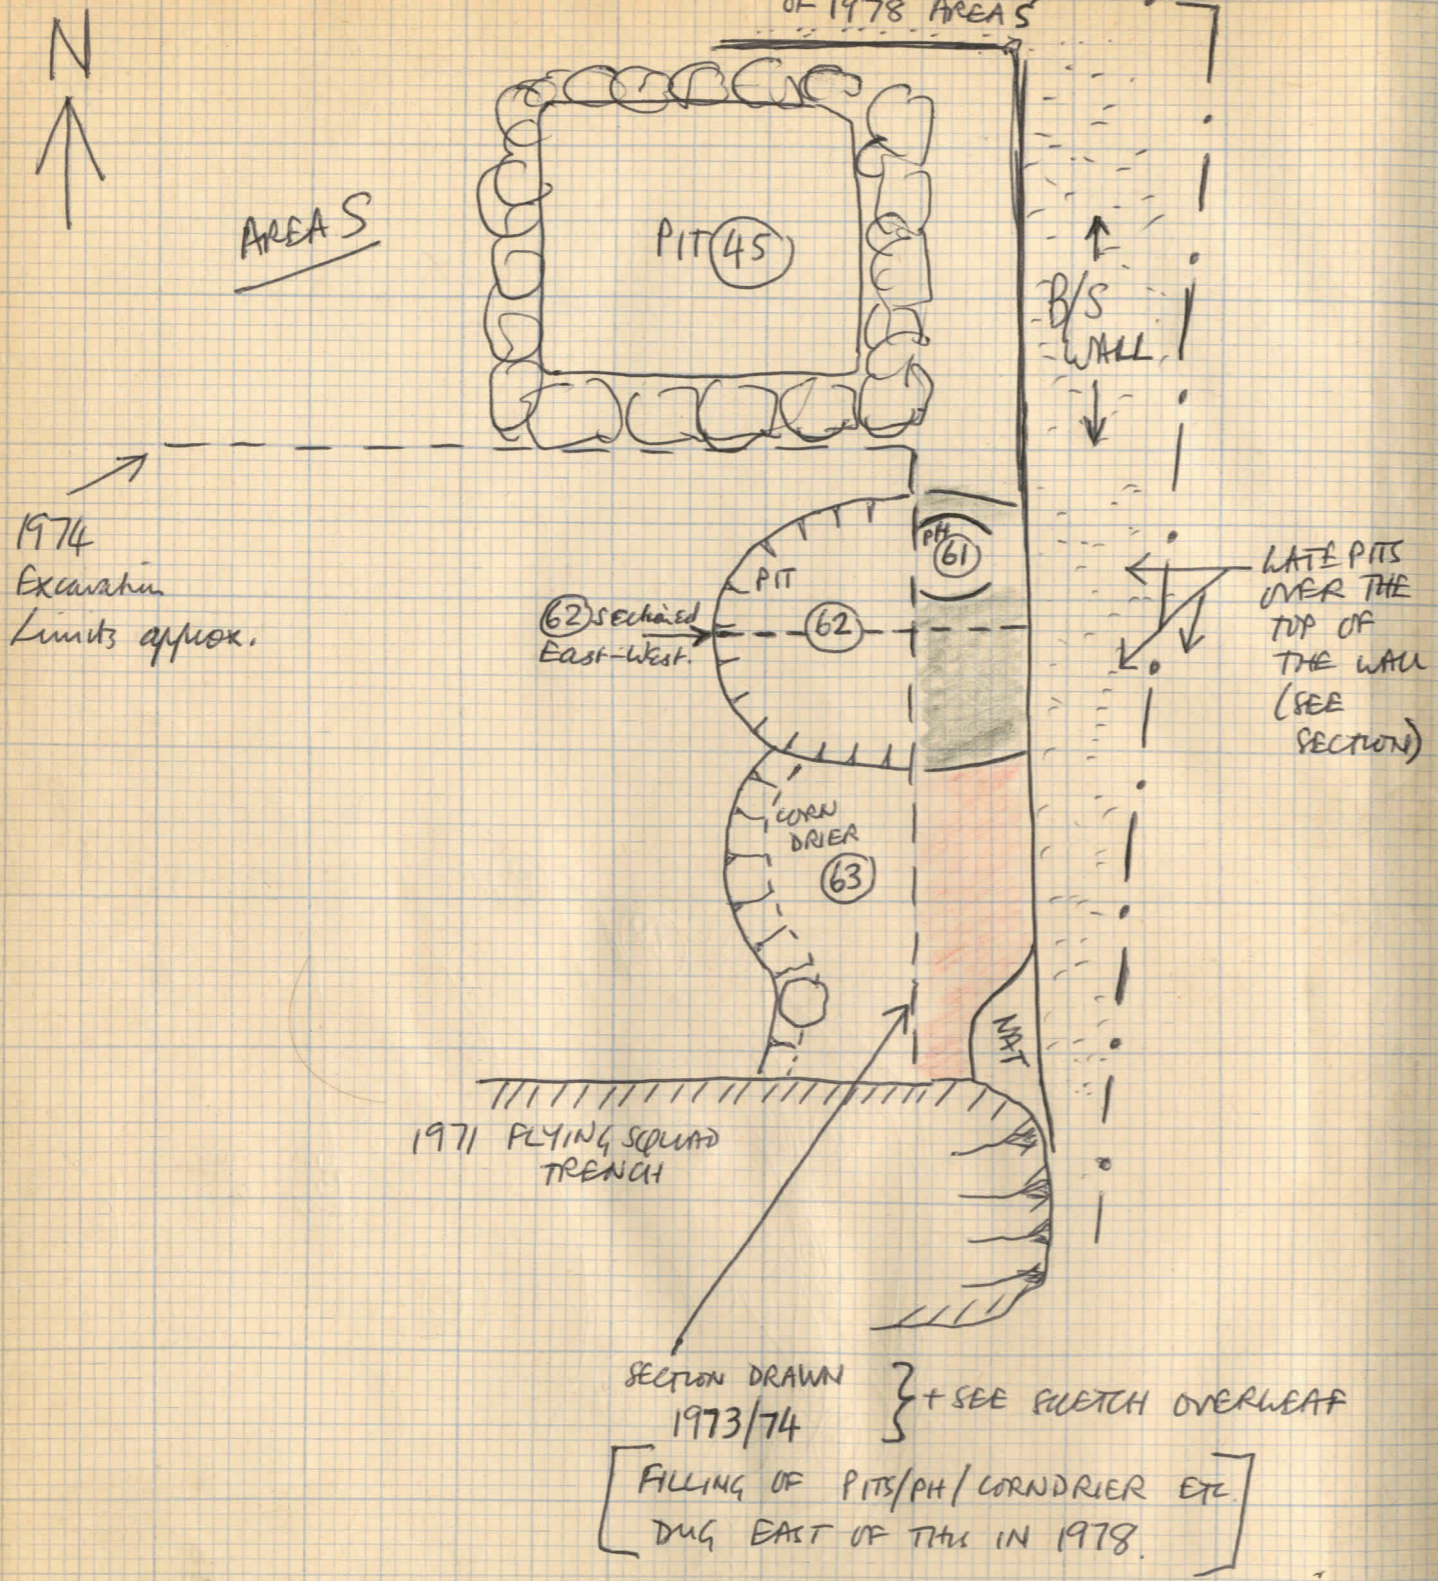 OF 1978 AREA S
N
AREA S
PIT 45
B/S
WALL
1974
Excavation
Limits approx.
PH
61
PIT
62
62 sectioned
East-West.
LATE PITS
OVER THE
TOP OF
THE WALL
(SEE
SECTION)
CORN
DRIER
63
NAT
1971 FLYING SQUAD
TRENCH
SECTION DRAWN
1973/74
} + SEE SKETCH OVERLEAF
[FILLING OF PITS/PH/CORNDRIER ETC.
DUG EAST OF THIS IN 1978.]